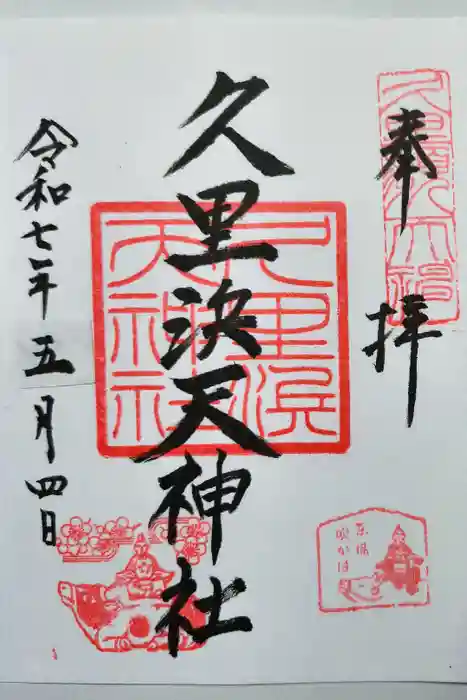 奉拝
久里浜天神社
令和七年五月四日
久里浜天神社
東風
吹かば